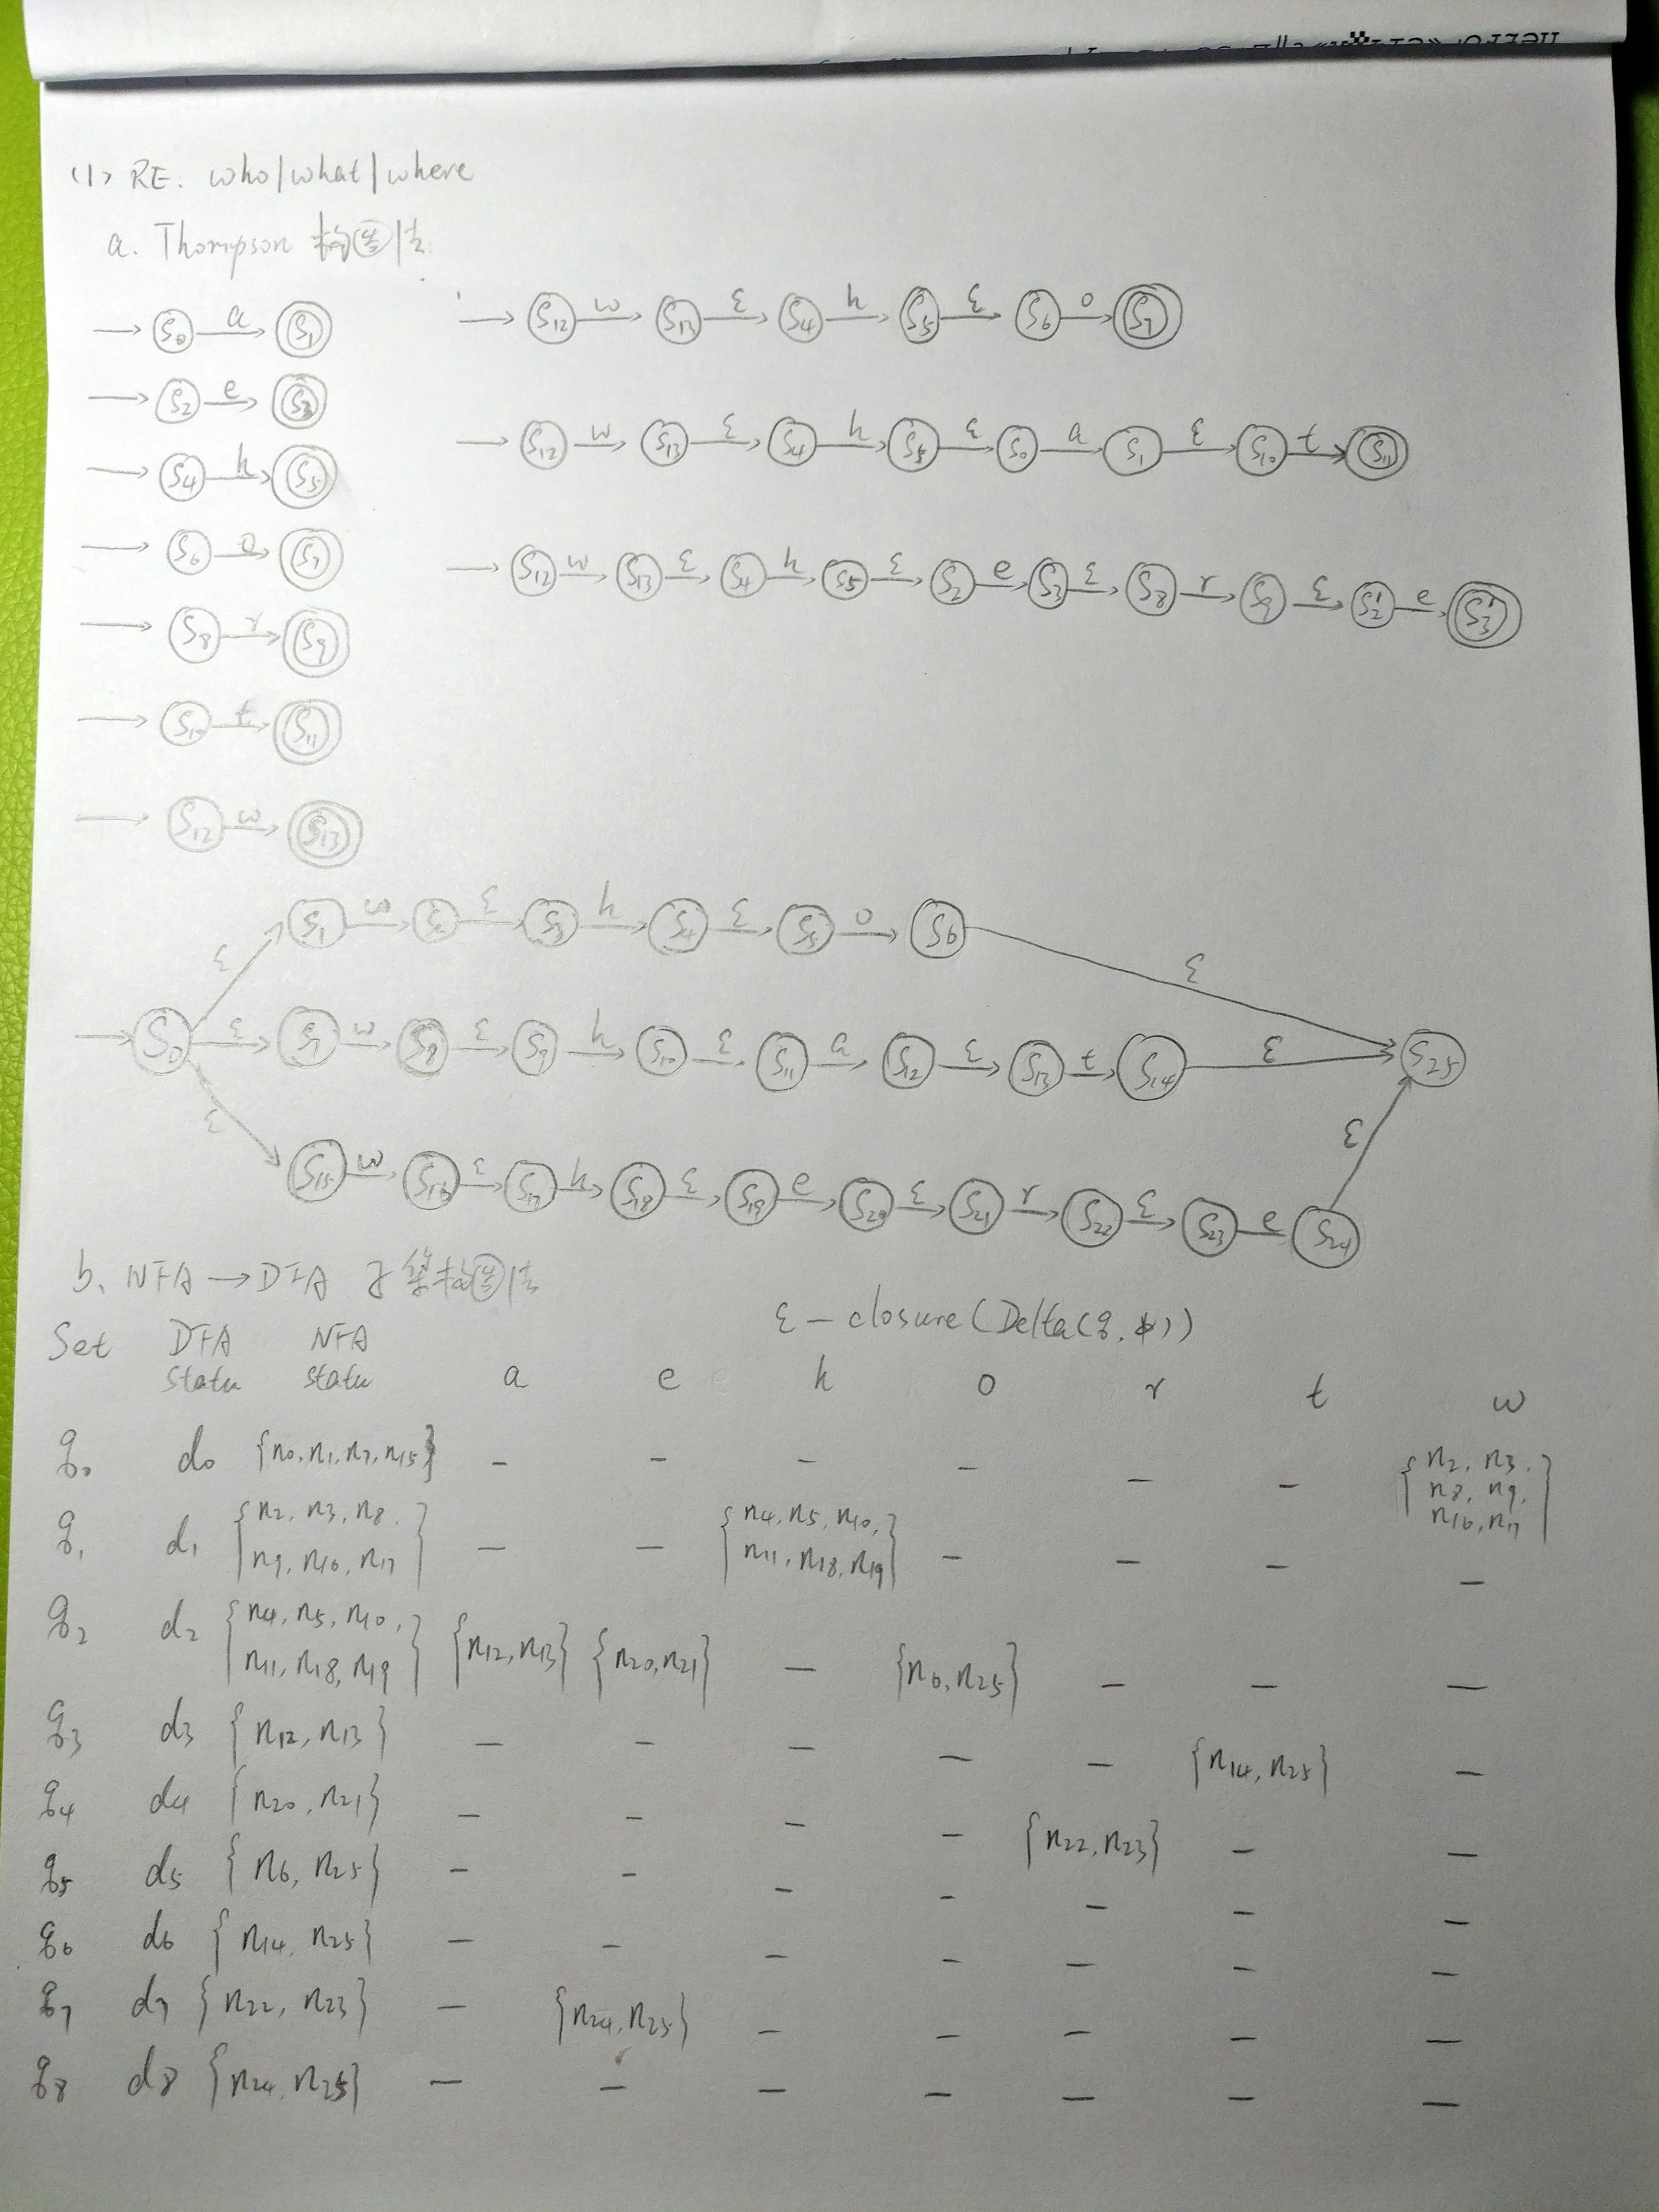 (1) RE: who|what|where
a. Thompson 构造法
→ S0 a→ S1
→ S2 e→ S3
→ S4 h→ S5
→ S6 o→ S7
→ S8 r→ S9
→ S10 t→ S11
→ S12 w→ S13
→ S12 w→ S13 ε→ S4 h→ S5 ε→ S6 o→ S7
→ S12 w→ S13 ε→ S4 h→ S5 ε→ S0 a→ S1 ε→ S10 t→ S11
→ S12 w→ S13 ε→ S4 h→ S5 ε→ S2 e→ S3 ε→ S8 r→ S9 ε→ S2' e→ S3'
ε S1 w→ S2 ε→ S3 h→ S4 ε→ S5 o→ S6 ε
→ S0 ε→ S7 w→ S8 ε→ S9 h→ S10 ε→ S11 a→ S12 ε→ S13 t→ S14 ε→ S25
ε S15 w→ S16 ε→ S17 h→ S18 ε→ S19 e→ S20 ε→ S21 r→ S22 ε→ S23 e→ S24 ε
b. NFA → DFA 子集构造法
Set DFA statu NFA statu ε-closure(Delta(q, ))
a e h o r t w
q0 d0 {n0, n1, n7, n15} - - - - - - {n2, n3, n8, n9, n16, n17}
q1 d1 {n2, n3, n8, n9, n16, n17} - - {n4, n5, n10, n11, n18, n19} - - - -
q2 d2 {n4, n5, n10, n11, n18, n19} {n12, n13} {n20, n21} - {n6, n25} - - -
q3 d3 {n12, n13} - - - - - {n14, n25} -
q4 d4 {n20, n21} - - - - {n22, n23} - -
q5 d5 {n6, n25} - - - - - - -
q6 d6 {n14, n25} - - - - - - -
q7 d7 {n22, n23} - {n24, n25} - - - - -
q8 d8 {n24, n25} - - - - - - -